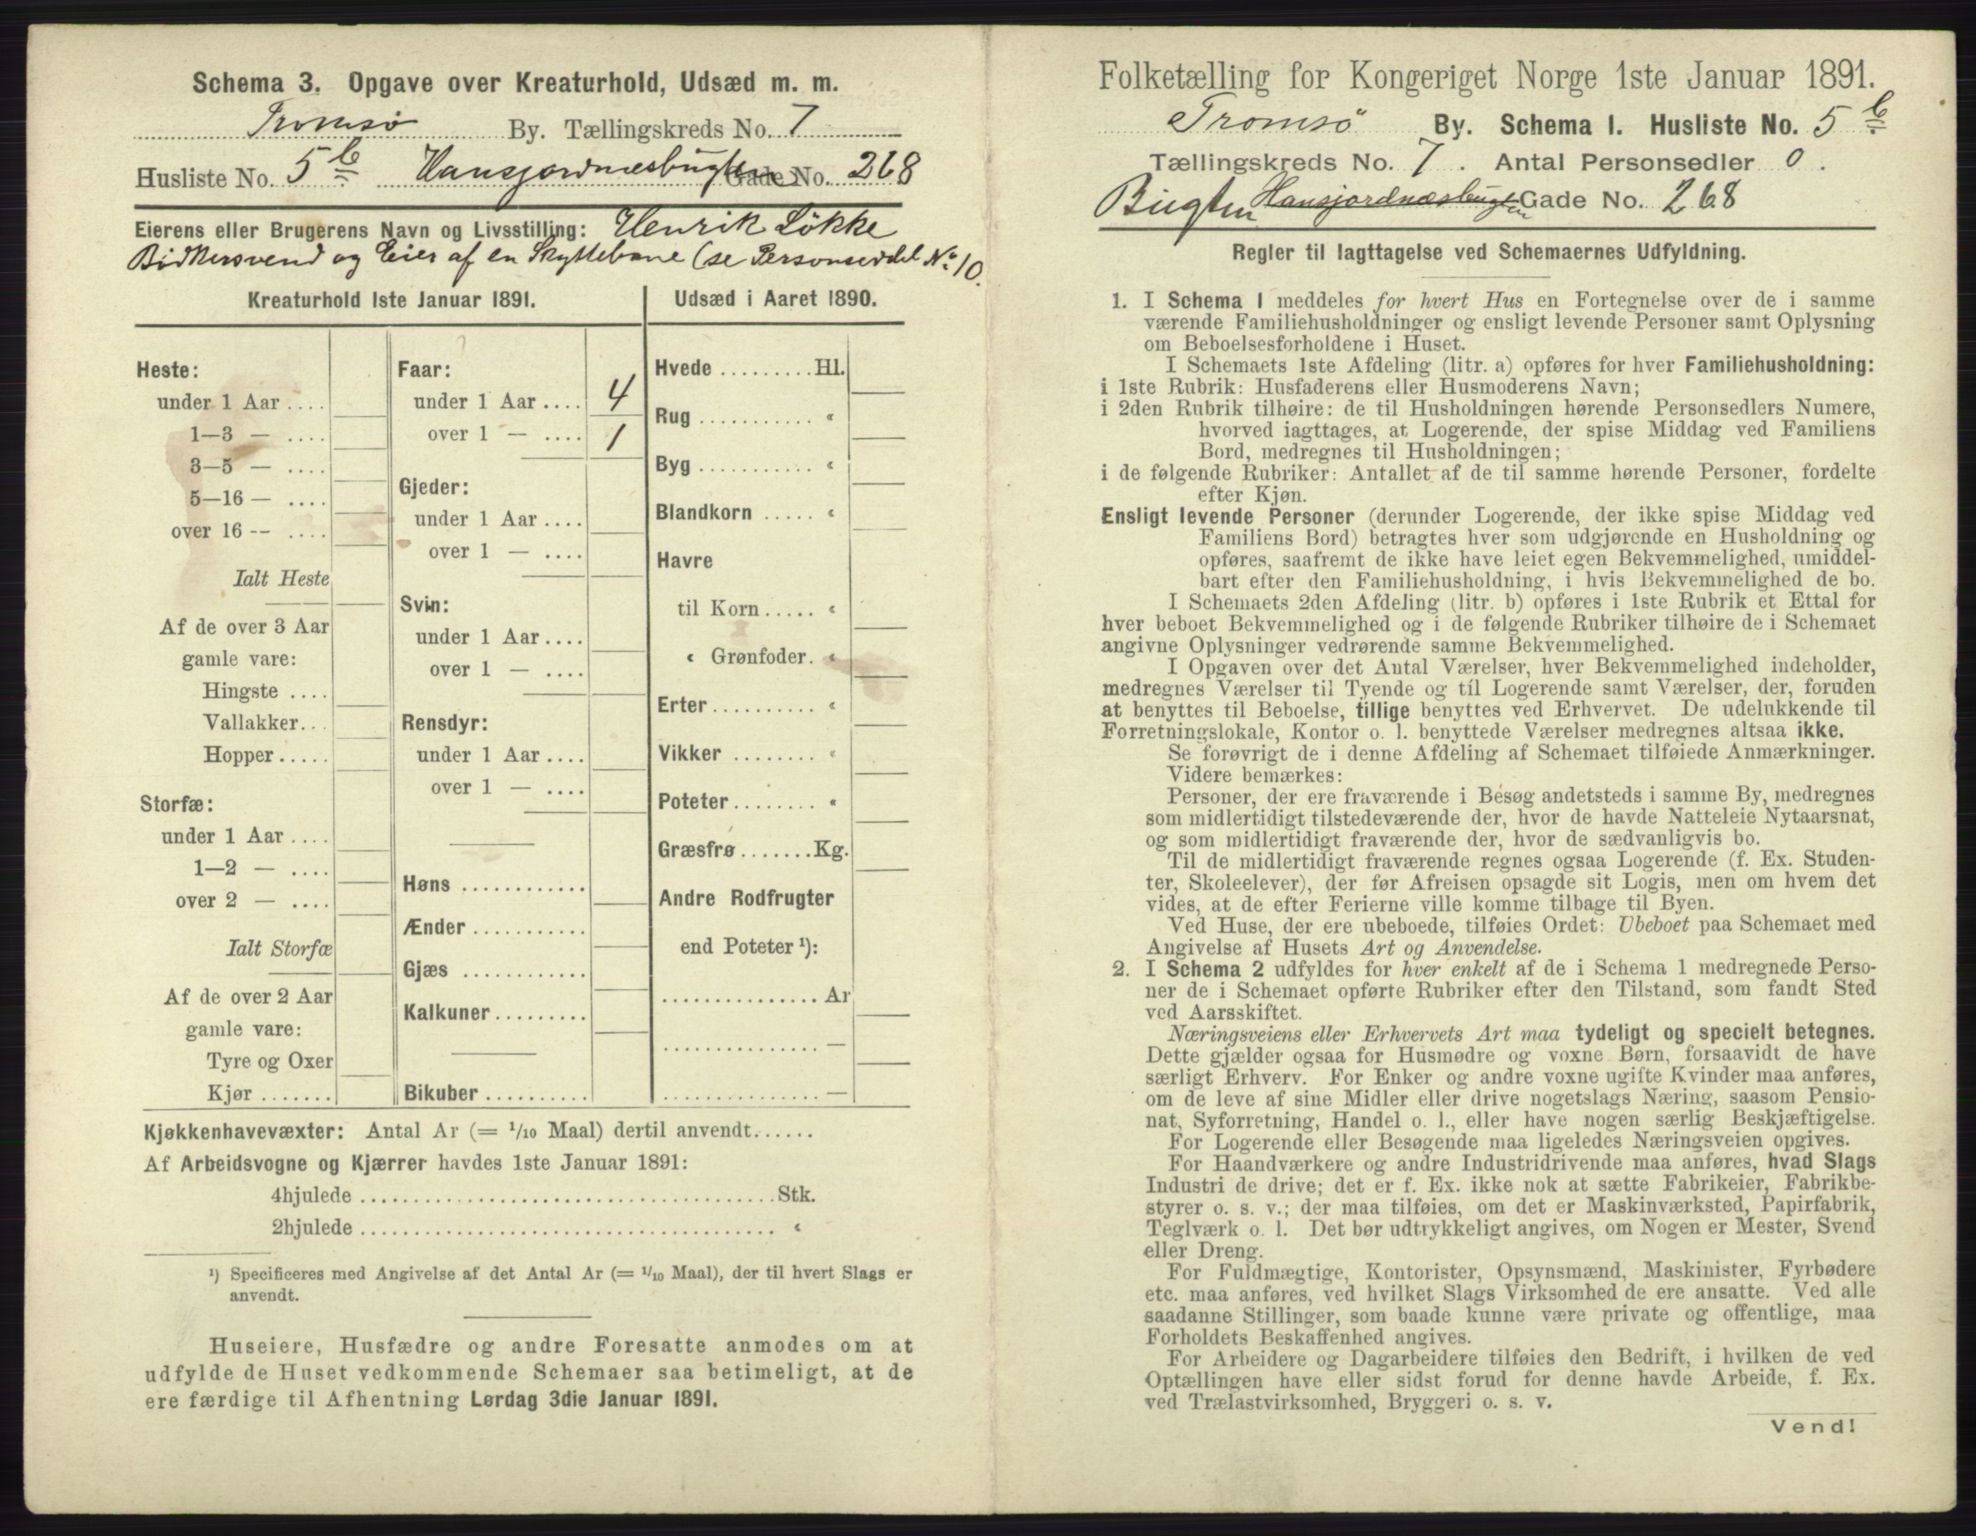 Schema 3. Opgave over Kreaturhold, Udsæd m. m.
Tromsø By. Tællingskreds No. 7
Husliste No. 5 b Hansjordnæsbugten Gade No. 268
Eierens eller Brugerens Navn og Livsstilling: Henrik Løkke
Bødkersvend og Eier af en Skyttebane (se Personseddel No 10.
Kreaturhold 1ste Januar 1891.
Heste:
under 1 Aar ....
1—3 — ....
3—5 — ....
5—16 — ....
over 16 -- ....
Ialt Heste
Af de over 3 Aar
gamle vare:
Hingste ....
Vallakker...
Hopper.....
Storfæ:
under 1 Aar ....
1—2 — ....
over 2 — ....
Ialt Storfæ
Af de over 2 Aar
gamle vare:
Tyre og Oxer
Kjør .......
Faar:
under 1 Aar .... 4
over 1 — .... 1
Gjeder:
under 1 Aar ....
over 1 — ....
Svin:
under 1 Aar ....
over 1 — ....
Rensdyr:
under 1 Aar ....
over 1 — ....
Høns ............
Ænder ...........
Gjæs ............
Kalkuner.........
Bikuber ..........
Udsæd i Aaret 1890.
Hvede .........Hl.
Rug .......... «
Byg .......... «
Blandkorn ..... «
Havre
til Korn ..... «
« Grønfoder. «
Erter.......... «
Vikker ........ «
Poteter........ «
Græsfrø .......Kg.
Andre Rodfrugter
end Poteter ¹):
............... Ar
............... —
............... —
Kjøkkenhavevæxter: Antal Ar (= 1/10 Maal) dertil anvendt......
Af Arbeidsvogne og Kjærrer havdes 1ste Januar 1891:
4hjulede ........................................Stk.
2hjulede ........................................ «
¹) Specificeres med Angivelse af det Antal Ar (= 1/10 Maal), der til hvert Slags er
anvendt.
Huseiere, Husfædre og andre Foresatte anmodes om at
udfylde de Huset vedkommende Schemaer saa betimeligt, at de
ere færdige til Afhentning Lørdag 3die Januar 1891.
Folketælling for Kongeriget Norge 1ste Januar 1891.
Tromsø By. Schema 1. Husliste No. 5 b
Tællingskreds No. 7. Antal Personsedler 0.
Bugten Hansjordnæsbugten Gade No. 268
Regler til Iagttagelse ved Schemaernes Udfyldning.
1. I Schema 1 meddeles for hvert Hus en Fortegnelse over de i samme
værende Familiehusholdninger og ensligt levende Personer samt Oplysning
om Beboelsesforholdene i Huset.
I Schemaets 1ste Afdeling (litr. a) opføres for hver Familiehusholdning:
i 1ste Rubrik: Husfaderens eller Husmoderens Navn;
i 2den Rubrik tilhøire: de til Husholdningen hørende Personsedlers Numere,
hvorved iagttages, at Logerende, der spise Middag ved Familiens
Bord, medregnes til Husholdningen;
i de følgende Rubriker: Antallet af de til samme hørende Personer, fordelte
efter Kjøn.
Ensligt levende Personer (derunder Logerende, der ikke spise Middag ved
Familiens Bord) betragtes hver som udgjørende en Husholdning og
opføres, saafremt de ikke have leiet egen Bekvemmelighed, umiddel-
bart efter den Familiehusholdning, i hvis Bekvemmelighed de bo.
I Schemaets 2den Afdeling (litr. b) opføres i 1ste Rubrik et Ettal for
hver beboet Bekvemmelighed og i de følgende Rubriker tilhøire de i Schemaet
angivne Oplysninger vedrørende samme Bekvemmelighed.
I Opgaven over det Antal Værelser, hver Bekvemmelighed indeholder,
medregnes Værelser til Tyende og til Logerende samt Værelser, der, foruden
at benyttes til Beboelse, tillige benyttes ved Erhvervet. De udelukkende til
Forretningslokale, Kontor o. l. benyttede Værelser medregnes altsaa ikke.
Se forøvrigt de i denne Afdeling af Schemaet tilføiede Anmærkninger.
Videre bemærkes:
Personer, der ere fraværende i Besøg andetsteds i samme By, medregnes
som midlertidigt tilstedeværende der, hvor de havde Natteleie Nytaarsnat,
og som midlertidigt fraværende der, hvor de sædvanligvis bo.
Til de midlertidigt fraværende regnes ogsaa Logerende (f. Ex. Studen-
ter, Skoleelever), der før Afreisen opsagde sit Logis, men om hvem det
vides, at de efter Ferierne ville komme tilbage til Byen.
Ved Huse, der ere ubeboede, tilføies Ordet: Ubeboet paa Schemaet med
Angivelse af Husets Art og Anvendelse.
2. I Schema 2 udfyldes for hver enkelt af de i Schema 1 medregnede Perso-
ner de i Schemaet opførte Rubriker efter den Tilstand, som fandt Sted
ved Aarsskiftet.
Næringsveiens eller Erhvervets Art maa tydeligt og specielt betegnes.
Dette gjælder ogsaa for Husmødre og voxne Børn, forsaavidt de have
særligt Erhverv. For Enker og andre voxne ugifte Kvinder maa anføres,
om de leve af sine Midler eller drive nogetslags Næring, saasom Pensio-
nat, Syforretning, Handel o. l., eller have nogen særlig Beskjæftigelse.
For Logerende eller Besøgende maa ligeledes Næringsveien opgives.
For Haandværkere og andre Industridrivende maa anføres, hvad Slags
Industri de drive; det er f. Ex. ikke nok at sætte Fabrikeier, Fabrikbe-
styrer o. s. v.; der maa tilføies, om det er Maskinværksted, Papirfabrik,
Teglværk o. l. Det bør udtrykkeligt angives, om Nogen er Mester, Svend
eller Dreng.
For Fuldmægtige, Kontorister, Opsynsmænd, Maskinister, Fyrbødere
etc. maa anføres, ved hvilket Slags Virksomhed de ere ansatte. Ved alle
saadanne Stillinger, som baade kunne være private og offentlige, maa
Forholdets Beskaffenhed angives.
For Arbeidere og Dagarbeidere tilføies den Bedrift, i hvilken de ved
Optællingen have eller sidst forud for denne havde Arbeide, f. Ex.
ved Trælastvirksomhed, Bryggeri o. s. v.
Vend!